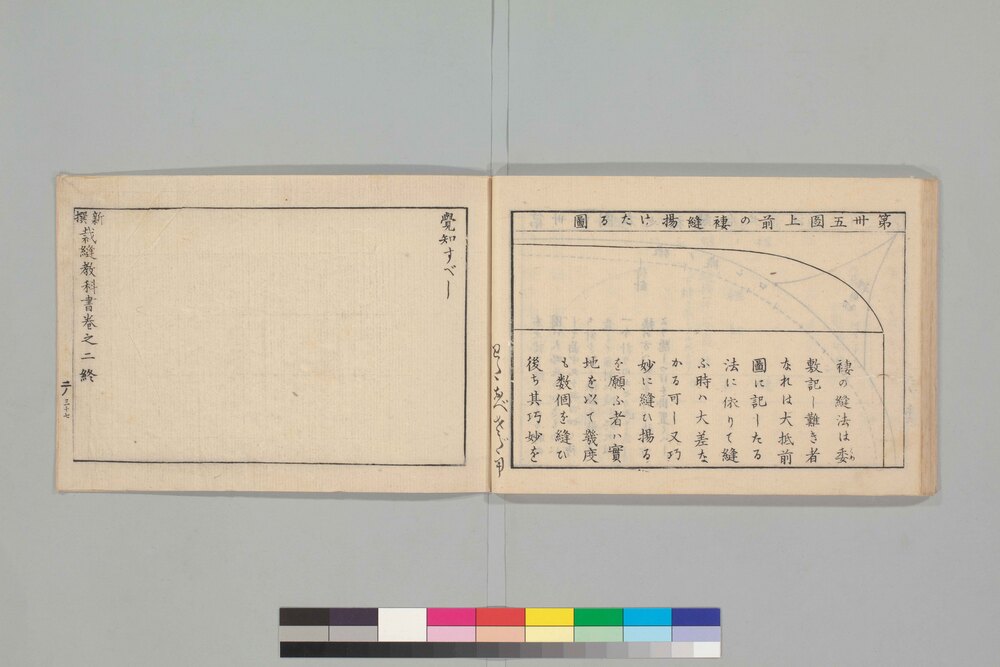 第卅五圖上前の褄縫揚けたる圖
褄の縫法は委
敷記し難き者
なれは大抵前
圖に記したる
法に依りて縫
ふ時ハ大差な
かる可し又巧
妙に縫ひ揚る
を願ふ者ハ實
地を以て幾度
も数個を縫ひ
後ち其巧妙を
覺知すべし
新撰裁縫教科書卷之二終
二ノ三十七